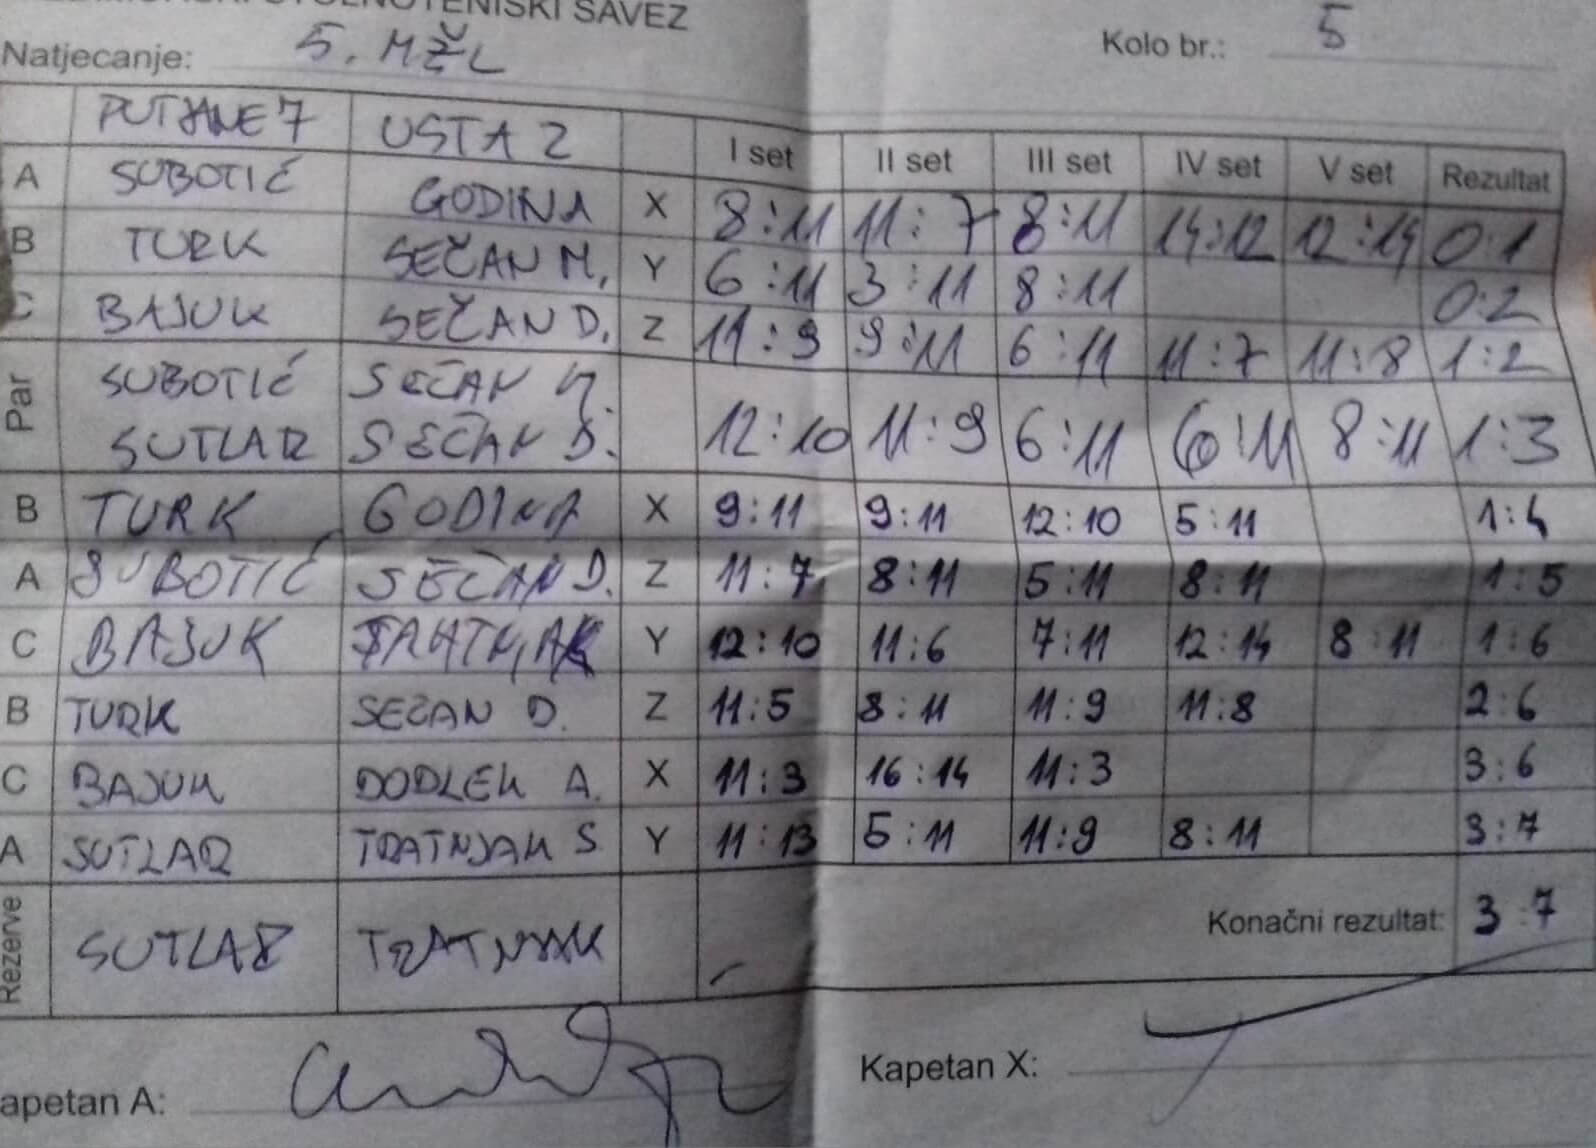 STOLNOTENISKI SAVEZ
Natjecanje: 5. MŽL Kolo br.: 5
PUTJANE 7 USTA 2 I set II set III set IV set V set Rezultat
A SUBOTIĆ GODINA X 8:11 11:7 8:11 14:12 12:14 0:1
B TURK SEČAN M. Y 6:11 3:11 8:11 0:2
C BAJUK SEČAN D. Z 11:9 9:11 6:11 11:7 11:8 1:2
Par SUBOTIĆ SEČAN M.
SUTLAR SEČAN D. 12:10 11:9 6:11 6:11 8:11 1:3
B TURK GODINA X 9:11 9:11 12:10 5:11 1:4
A SUBOTIĆ SEČAN D. Z 11:7 8:11 5:11 8:11 1:5
C BAJUK Y 12:10 11:6 7:11 12:14 8:11 1:6
B TURK SEČAN D. Z 11:5 8:11 11:9 11:8 2:6
C BAJUK DODLEK A. X 11:3 16:14 11:3 3:6
A SUTLAR TRATNJAK S Y 11:13 5:11 11:9 8:11 3:7
Rezerve SUTLAR TRATNJAK Konačni rezultat: 3:7
apetan A: Kapetan X: